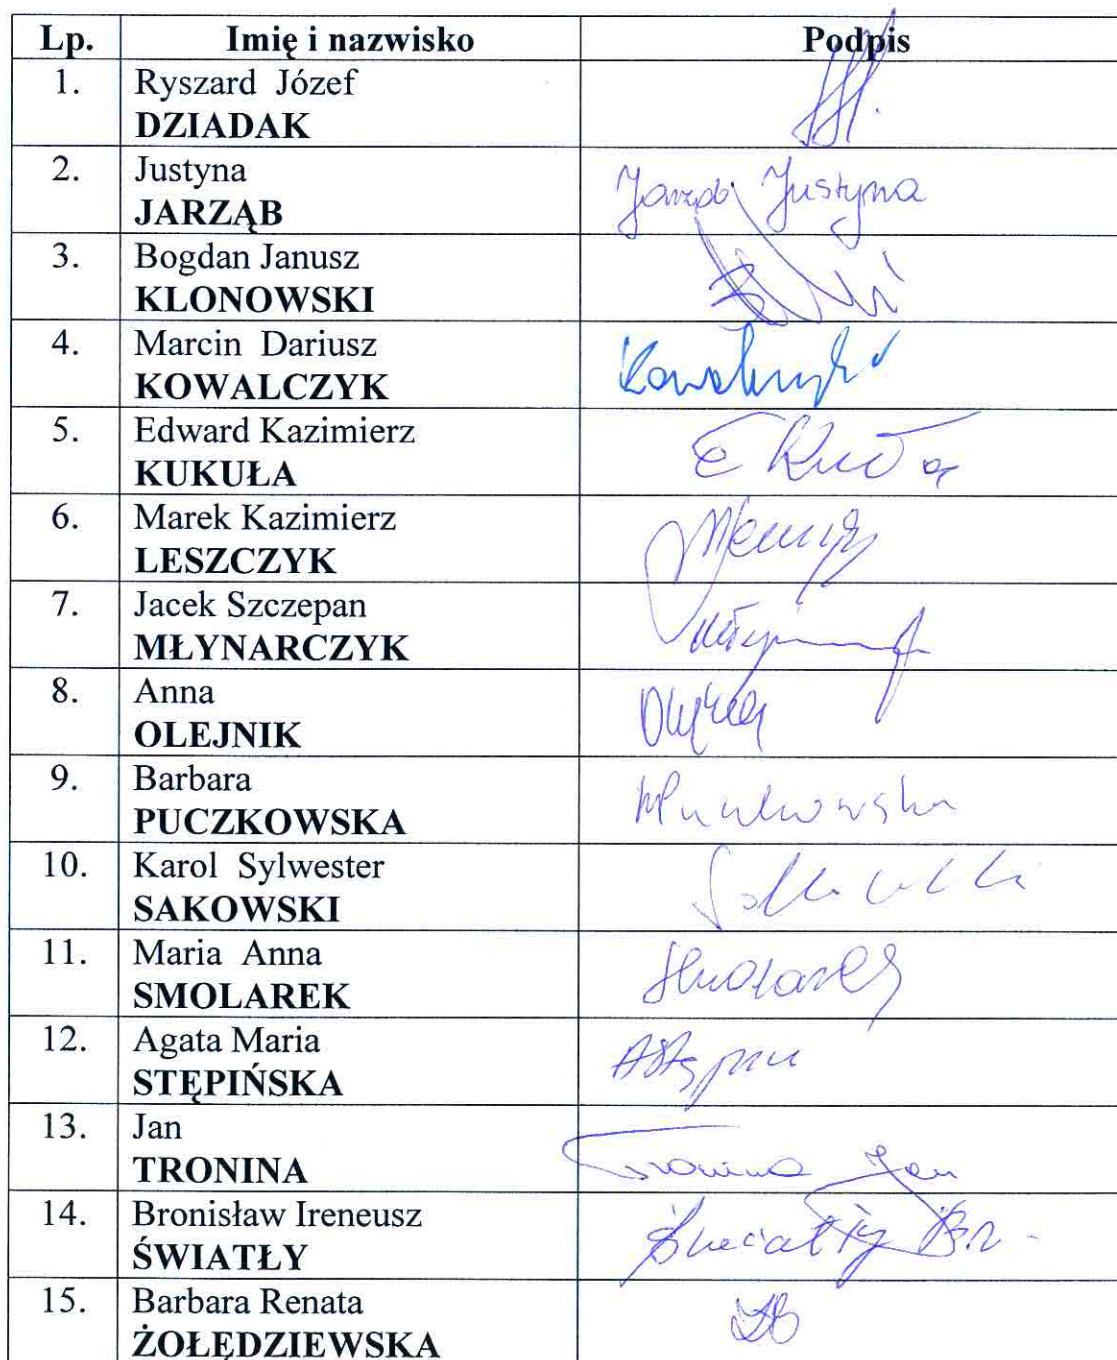 Lp. Imię i nazwisko Podpis
1. Ryszard Józef
DZIADAK
2. Justyna
JARZĄB Jarząb Justyna
3. Bogdan Janusz
KLONOWSKI
4. Marcin Dariusz
KOWALCZYK Kowalczyk
5. Edward Kazimierz
KUKUŁA
6. Marek Kazimierz
LESZCZYK
7. Jacek Szczepan
MŁYNARCZYK
8. Anna
OLEJNIK
9. Barbara
PUCZKOWSKA
10. Karol Sylwester
SAKOWSKI
11. Maria Anna
SMOLAREK
12. Agata Maria
STĘPIŃSKA
13. Jan
TRONINA Tronina Jan
14. Bronisław Ireneusz
ŚWIATŁY Światły Br.
15. Barbara Renata
ŻOŁĘDZIEWSKA